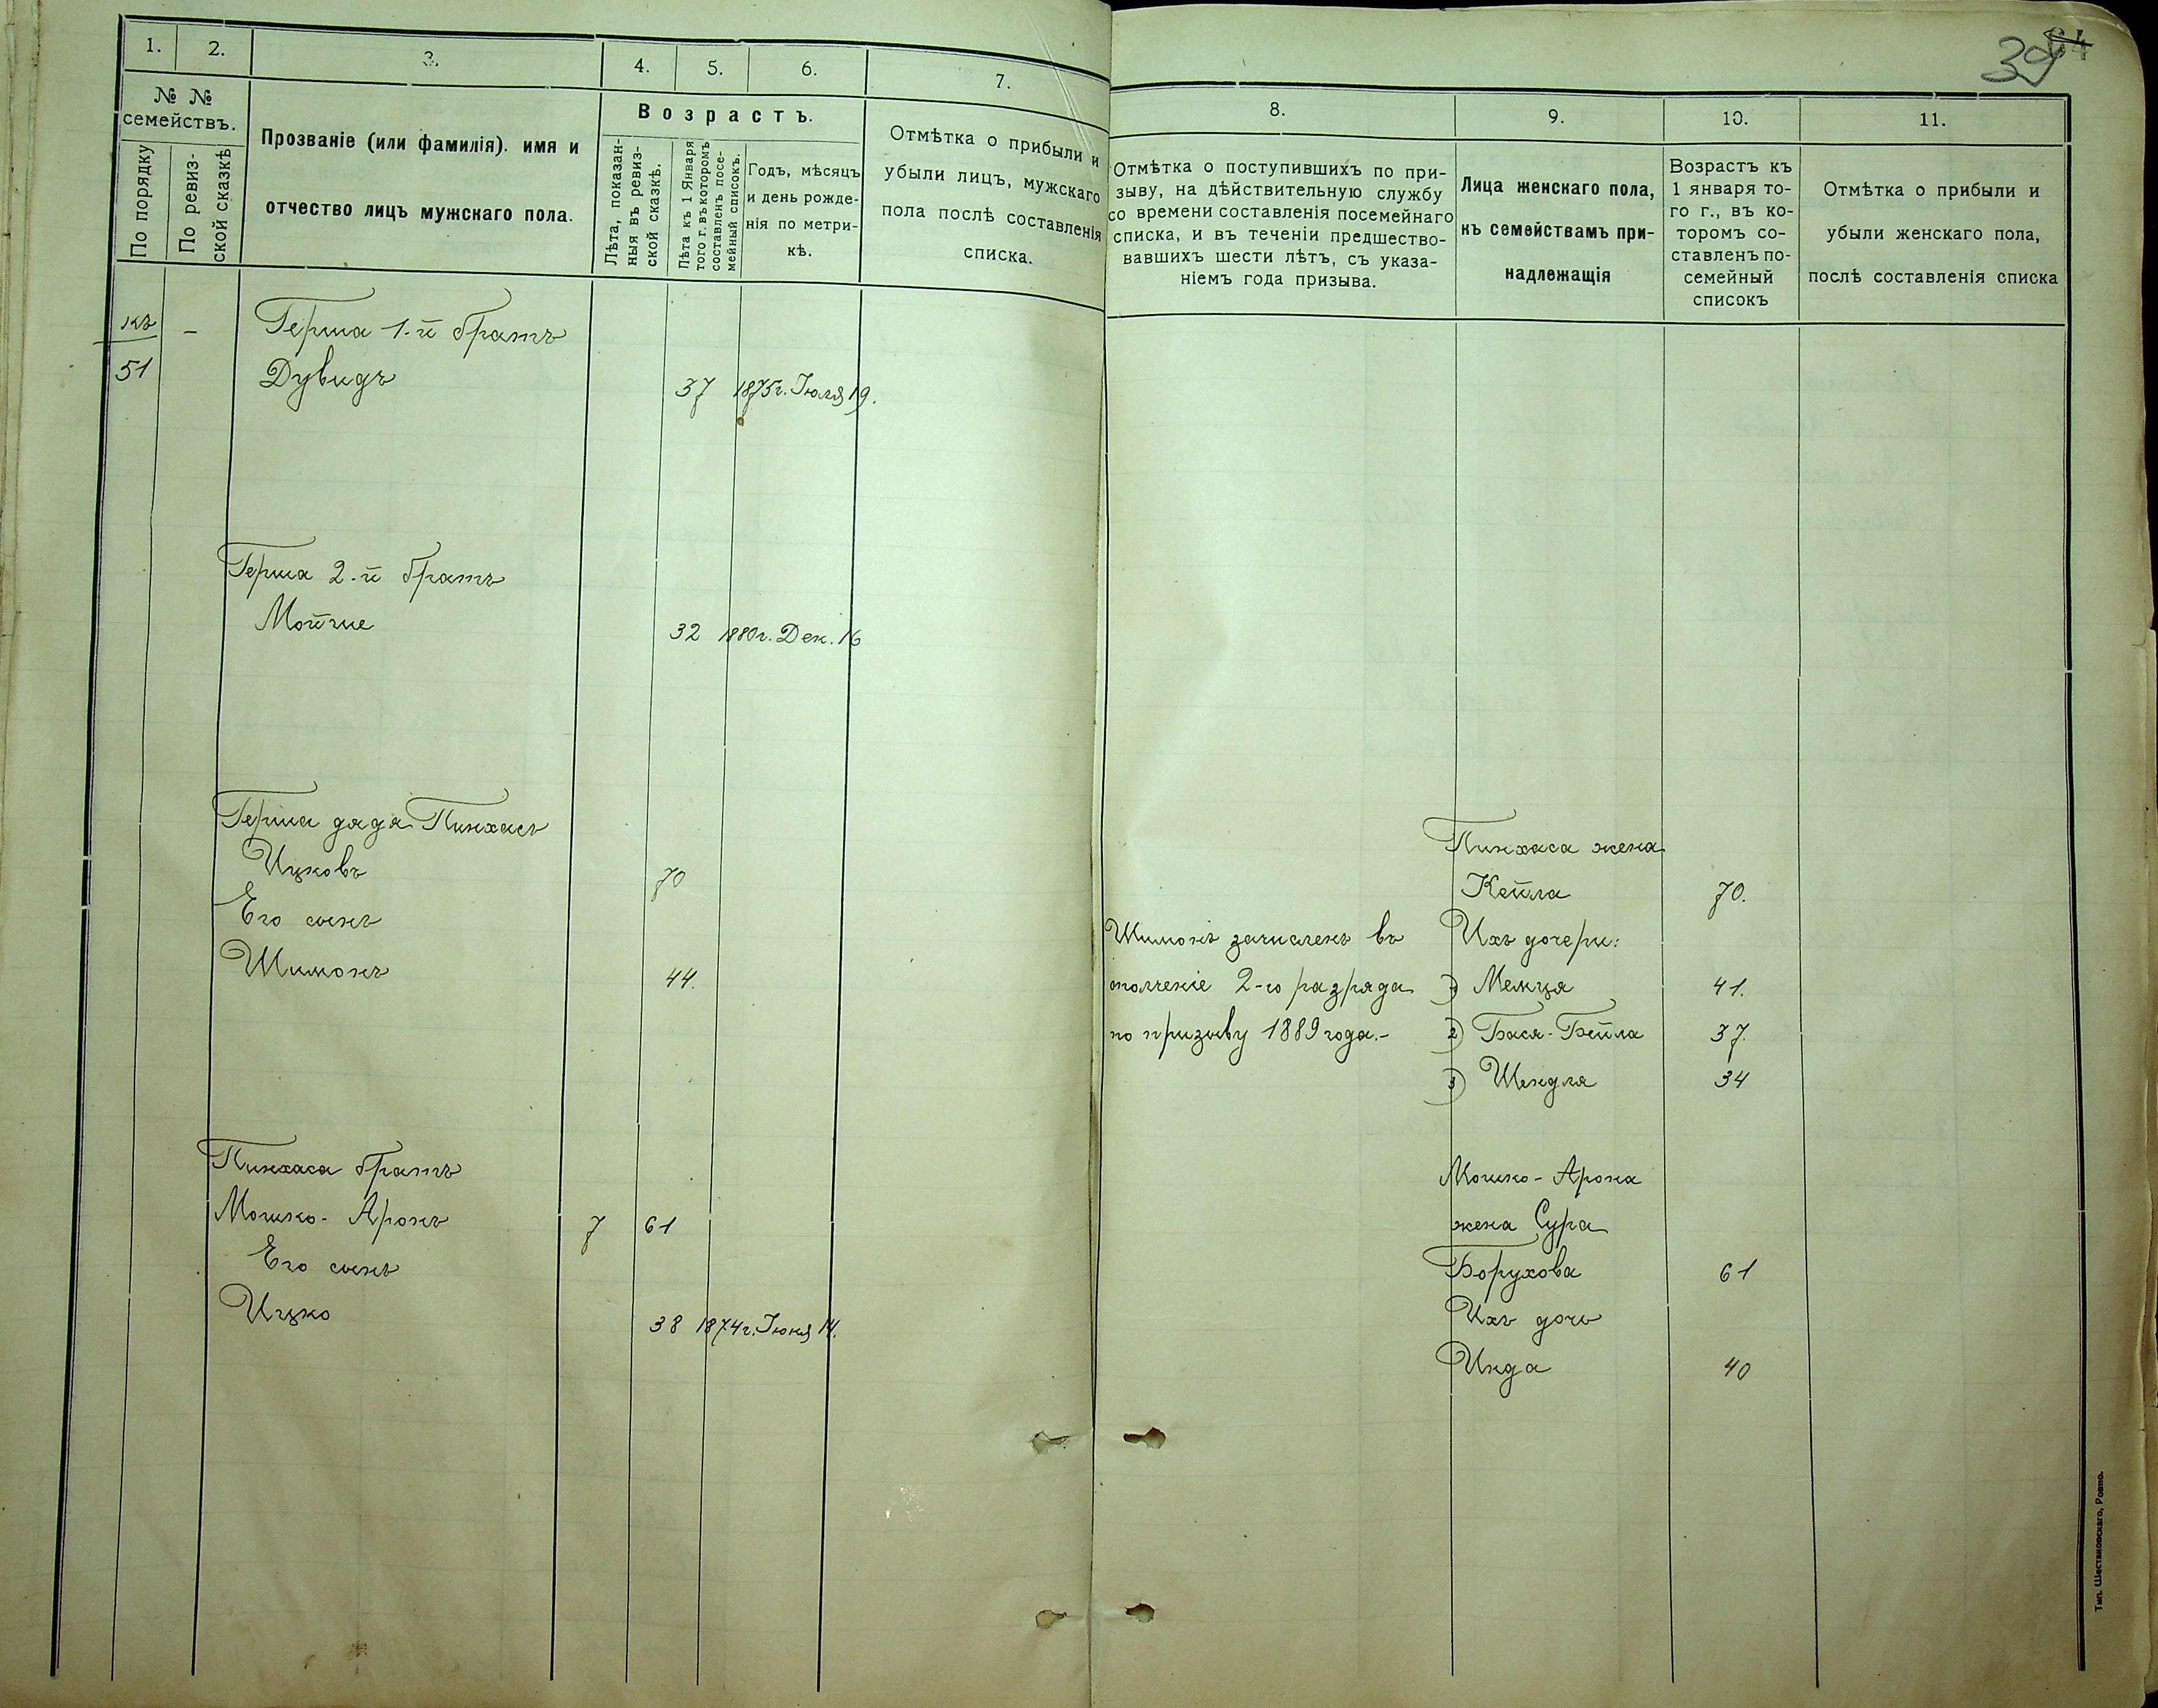 39
1.
2.
3.
4.
5.
6.
7.
№ №
семействъ.
По порядку
По ревиз-
ской сказкѣ
Прозваніе (или фамилія). имя и
отчество лицъ мужскаго пола.
Возрастъ.
Лѣта, показан-
ныя въ ревиз-
ской сказкѣ.
Лѣта къ 1 Января
того г. въ которомъ
составленъ посе-
мейный списокъ.
Годъ, мѣсяцъ
и день рожде-
нія по метри-
кѣ.
Отмѣтка о прибыли и
убыли лицъ, мужскаго
пола послѣ составленія
списка.
8.
9.
10.
11.
Отмѣтка о поступившихъ по при-
зыву, на дѣйствительную службу
со времени составленія посемейнаго
списка, и въ теченіи предшество-
вавшихъ шести лѣтъ, съ указа-
ніемъ года призыва.
Лица женскаго пола,
къ семействамъ при-
надлежащія
Возрастъ къ
1 января то-
го г., въ ко-
торомъ со-
ставленъ по-
семейный
списокъ
Отмѣтка о прибыли и
убыли женскаго пола,
послѣ составленія списка
къ – Герша 1-й братъ
51 Дувидъ 37 1875г. Іюля 19.
Герша 2-й братъ
Мойше 32 1880г. Дек. 16
Герша дядя Пинхасъ
Ицковъ 70
Его сынъ
Шимонъ 44.
Пинхаса братъ
Мошко-Аронъ 7 61
Его сынъ
Ицко 38 1874г. Іюня 14.
Шимонъ зачисленъ въ
ополченіе 2-го разряда
по призыву 1889 года.-
Пинхаса жена
Кейла 70.
Ихъ дочери:
1) Менця 41.
2) Бася-Бейла 37.
3) Шендля 34
Мошко-Арона
жена Сура
Борухова 61
Ихъ дочь
Инда 40
Тип. Шестаковскаго, Ровно.